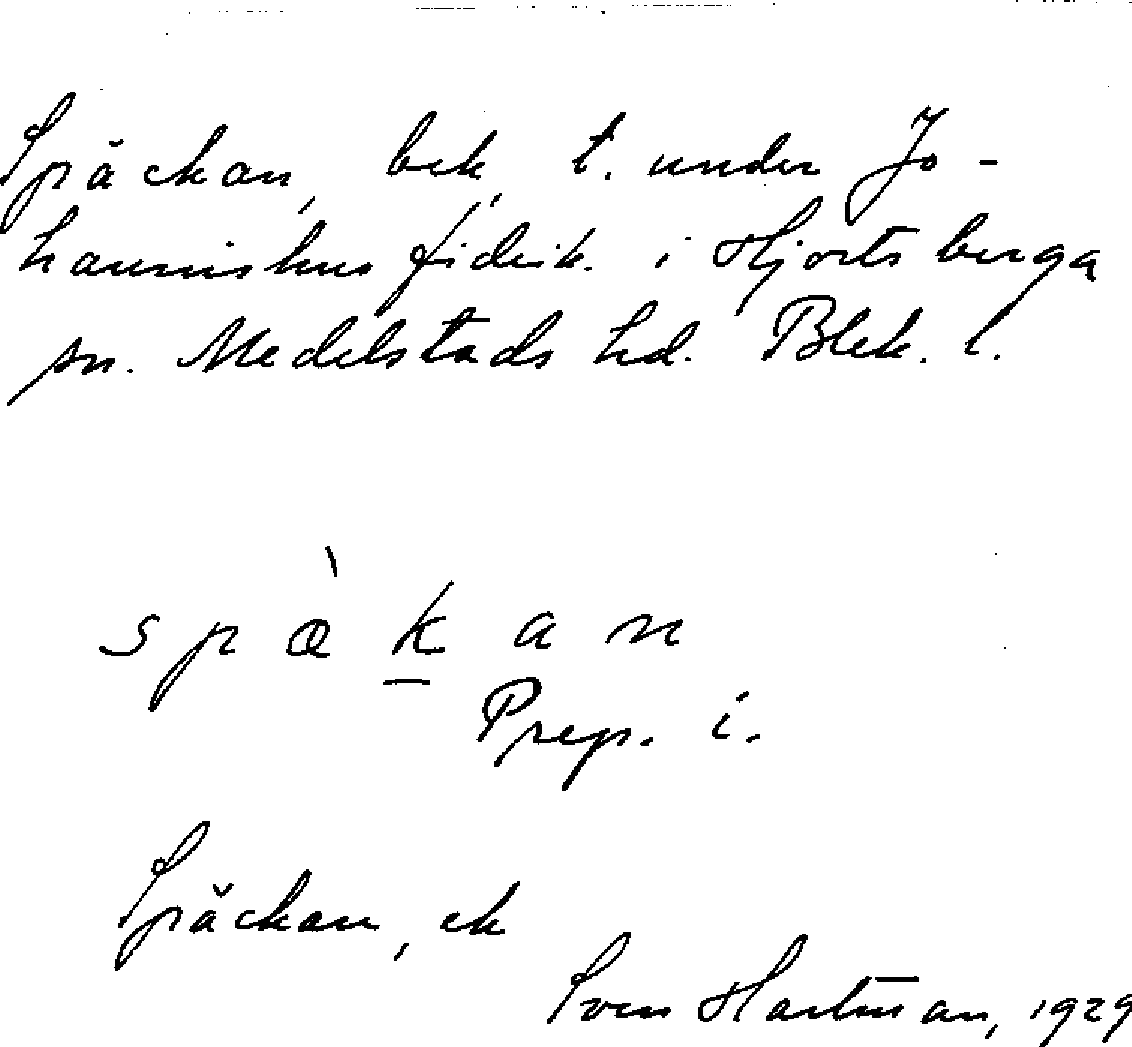 Späckan, bek, t. under Jo-
hannishus fideik. i Hjortsberga
sn. Medelstads hd. Blek. l.
spæ̀kan
Prep. i.
Späckan, ek
Sven Hartman, 1929